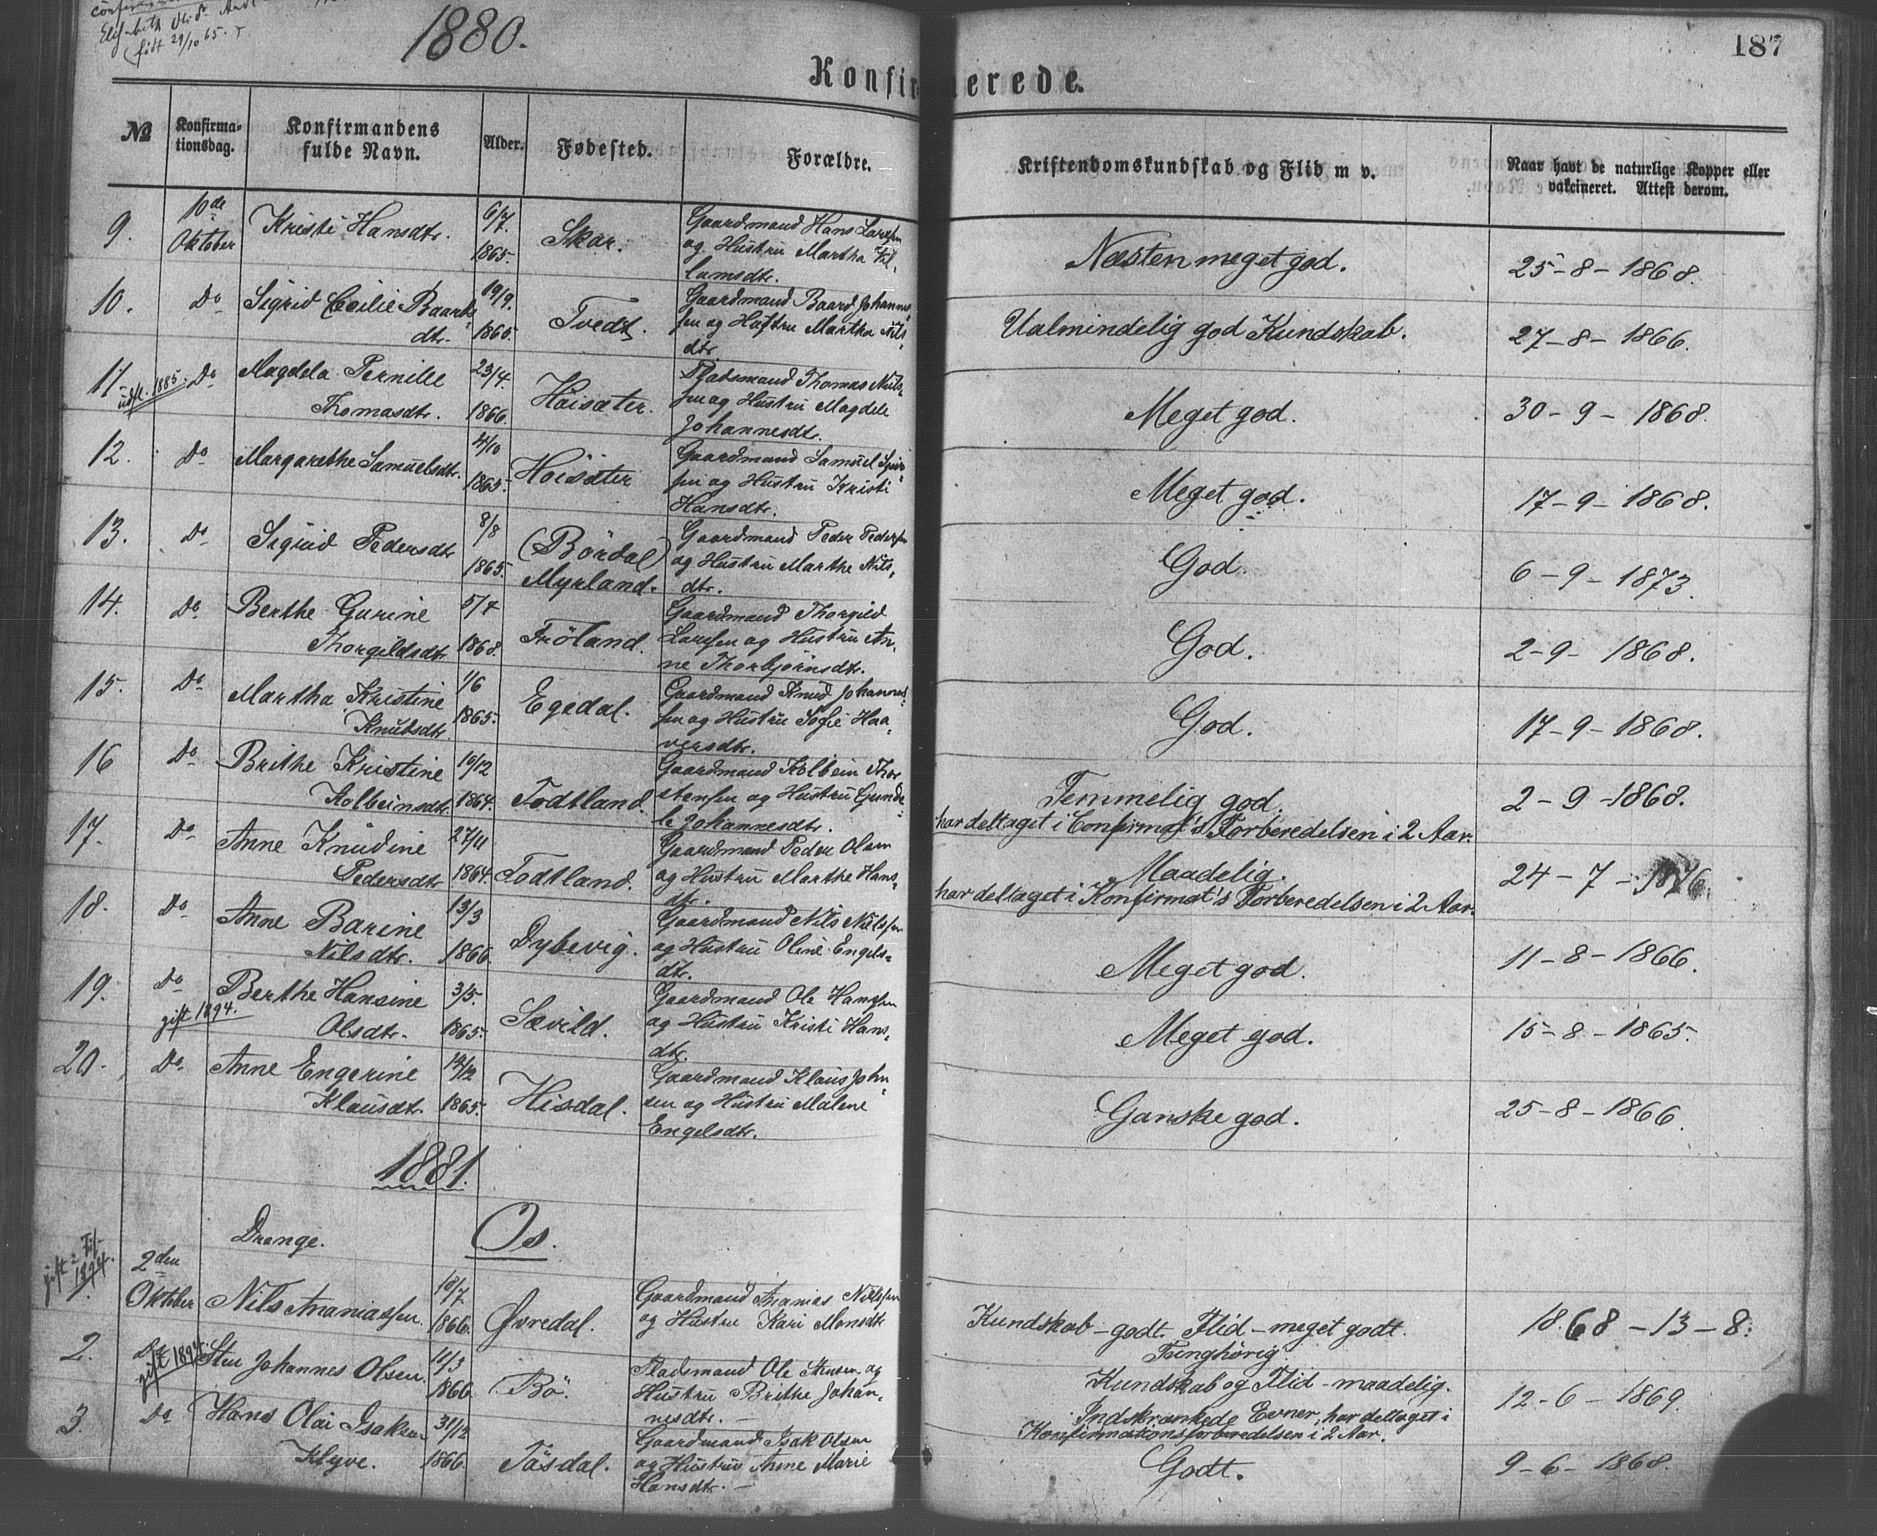 født 29/10 65.
1880.
187
Konfirmerede.
№
Konfirma-
tionsdag.
Konfirmandens
fulde Navn.
Alder.
Fødested.
Forældre.
Kristendomskundskab og Flid m v.
Naar havt de naturlige Kopper eller
vakcineret. Attest derom.
9. 10de Oktober Kristi Hansdtr. 6/7. 1865. Skar. Gaardmand Hans Larssen
og Hustru Martha
lumsdtr. Næsten meget god. 25-8-1868.
10. Do Sigrid Cecilie Baards
dtr. 19/9. 1865. Tvedt. Gaardmand Baard Johannes-
sen og Hustru Martha Nils-
dtr. Ualmindelig god Kundskab. 27-8-1866.
11. udfl. 1885. Do Magdela Pernille
Thomasdtr. 23/4. 1866. Høisæter. Pladsmand Thomas Nils-
sen og Hustru Magdele
Johannesdtr. Meget god. 30-9-1868.
12. Do Margarethe Samuelsdtr. 4/10 1865. Höisæter Gaardmand Samuel
sen og Hustru Kristi
Hansdtr. Meget god. 17-9-1868.
13. Do Sigrid Pedersdtr 8/8 1865. (Bördal)
Myrland. Gaardmand Peder Pedersen
og Hustru Marthe Nils-
dtr. God. 6-9-1873.
14. Do Berthe Gurine
Thorgildsdtr. 5/7 1868. Fröland. Gaardmand Thorgild
Larssen og Hustru An-
ne Thorbjørnsdtr. God. 2-9-1868.
15. Do Martha Kristine
Knudsdtr. 1/6 1865. Egedal. Gaardmand Knud Johannes-
sen og Hustru Sofie Haa-
versdtr. God. 17-9-1868.
16 Do Brithe Kristine
Kolbeinsdtr. 16/12 1864. Todtland. Gaardmand Kolbein Thor
stensen og Hustru Gunde-
le Johannesdtr. Temmelig god.
har deltaget i Confirmat's Forberedelsen i 2 Aar. 2-9-1868.
17. Do Anne Knudine
Pedersdtr 27/11 1864. Todtland. Gaardmand Peder Olsen
og Hustru Marthe Hans-
dtr. Maadelig.
har deltaget i Konfirmat's Forberedelsen i 2 Aar. 24-7-1876.
18. Do Anne Barine
Nilsdtr. 13/3 1866. Dybevig. Gaardmand Nils Nilssen
og Hustru Oline Engels-
dtr. Meget god. 11-8-1866.
19. Do gift 1894. Berthe Hansine
Olsdtr. 3/5. 1865. Sævild. Gaardmand Ole Hanssen
og Hustru Kristi Hans-
dtr. Meget god. 15-8-1865.
20. Do Anne Engerine
Klausdtr 14/2 1865. Hisdal. Gaardmand Klaus John
sen og Hustru Malene
Engelsdtr. Ganske god. 25-8-1866.
1881.
Drenge. Os.
gift i 1894. 1. 2den Oktober Nils Ananiassen. 18/7 1866. Øvredal. Gaardmand Ananias Nilssen
og Hustru Kari Monsdtr Kundskab - godt. Flid - meget godt.
Tunghörig. 1868-13-8.
2. Do gift 1894. Sten Johannes Olsen. 11/3 1866. Bö. Pladsmand Ole Stensen og
Hustru Brithe Johan-
nesdtr. - Kundskab og Flid - maadelig.
Indskrænkede Evner, har deltaget i
Konfirmationsforberedelsen i 2 Aar. 12-6-1869.
3. Do Hans Olai Isaksen
Klyve. 31/12 1866. Tösdal. Gaardmand Isak Olsen
og Hustru Anne Marie
Hansdtr. - Godt. 9-6-1868.